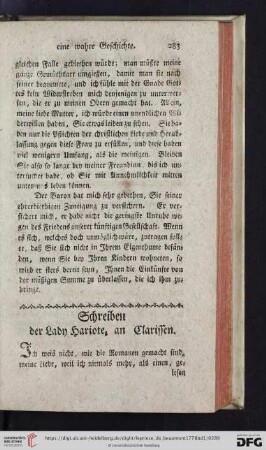 eine wahre Geschichte. 283
gleichen Falle geblieben würde; man müßte meine
ganze Gemüthsart umgiessen, damit man sie nach
seiner beqvemete, und ich fühle mit der Gnade Got-
tes kein Widerstreben mich demjenigen zu unterwer-
fen, die er zu meinen Obern gemacht hat. Allein,
meine liebe Mutter, ich würde einen unendlichen Wi-
derwillen haben, Sie etwas leiden zu sehen. Sie ha-
ben nur die Pflichten der christlichen Liebe und Herab-
lassung gegen diese Frau zu erfüllen, und diese haben
viel wenigern Umfang, als die meinigen. Bleiben
Sie also so lange bey meiner Freundinn, bis ich un-
tersuchet habe, ob Sie mit Annehmlichkeit mitten
unter uns leben können.
Der Baron hat mich sehr gebethen, Sie seiner
ehrerbiethigen Zuneigung zu versichern. Er ver-
sichert mich, er habe nicht die geringste Unruhe we-
gen des Friedens unserer künftigen Gesellschaft. Wenn
es sich, welches doch unmöglich wäre, zutragen sollte
er, daß Sie sich nicht in Ihrem Eigenthume befän-
den, wenn Sie bey Ihren Kindern wohneten, so
wird er stets bereit seyn, Ihnen die Einkünfte von
der mäßigen Summe zu überlassen, die ich ihm zu-
bringe.
Schreiben
der Lady Hariote, an Clarissen.
Ich weis nicht, wie die Romanen gemacht sind,
meine Liebe, weil ich niemals mehr, als einen, ge-
lesen
https://digi.ub.uni-heidelberg.de/diglit/leprince_de_beaumont1778bd1/0289
© Universitätsbibliothek Heidelberg
gefördert durch die
DFG